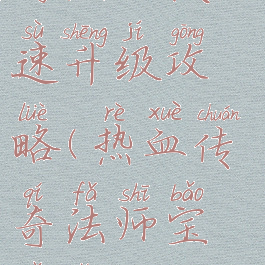 sù shēng jí gōng
速升级攻
lüè rè xuè chuán
略(热血传
qí fǎ shī bǎo
奇法师宝